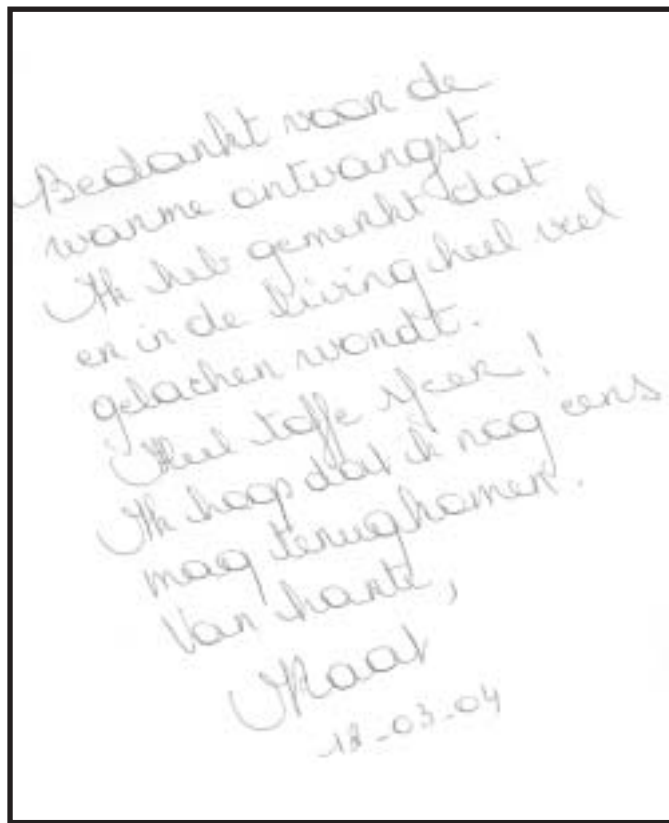 Bedankt voor de
warme ontvangst.
Ik heb gemerkt dat
er in de living heel veel
gelachen wordt.
Heel toffe sfeer!
Ik hoop dat ik nog eens
mag terugkomen.
Van harte,
18-03-04